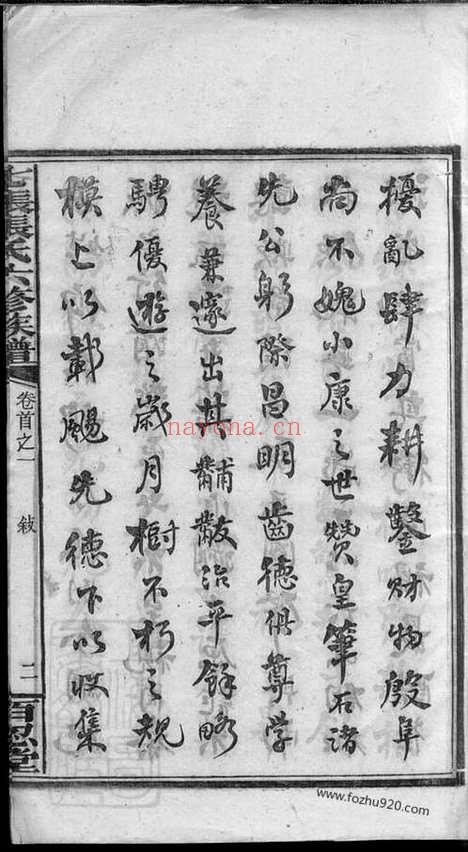 擾亂肆力耕鑿財物殷阜
尚不媿小康之世贊皇筆石諸
先公躬際昌明齒德俱尊學
養兼邃出其黼黻治平餘略
騁優遊之歲月樹不朽之規
模上以載颺先德下以收集
張氏六修族譜
卷首之一
敍
二
百忍堂
nayona.cn
www.fozhu920.com